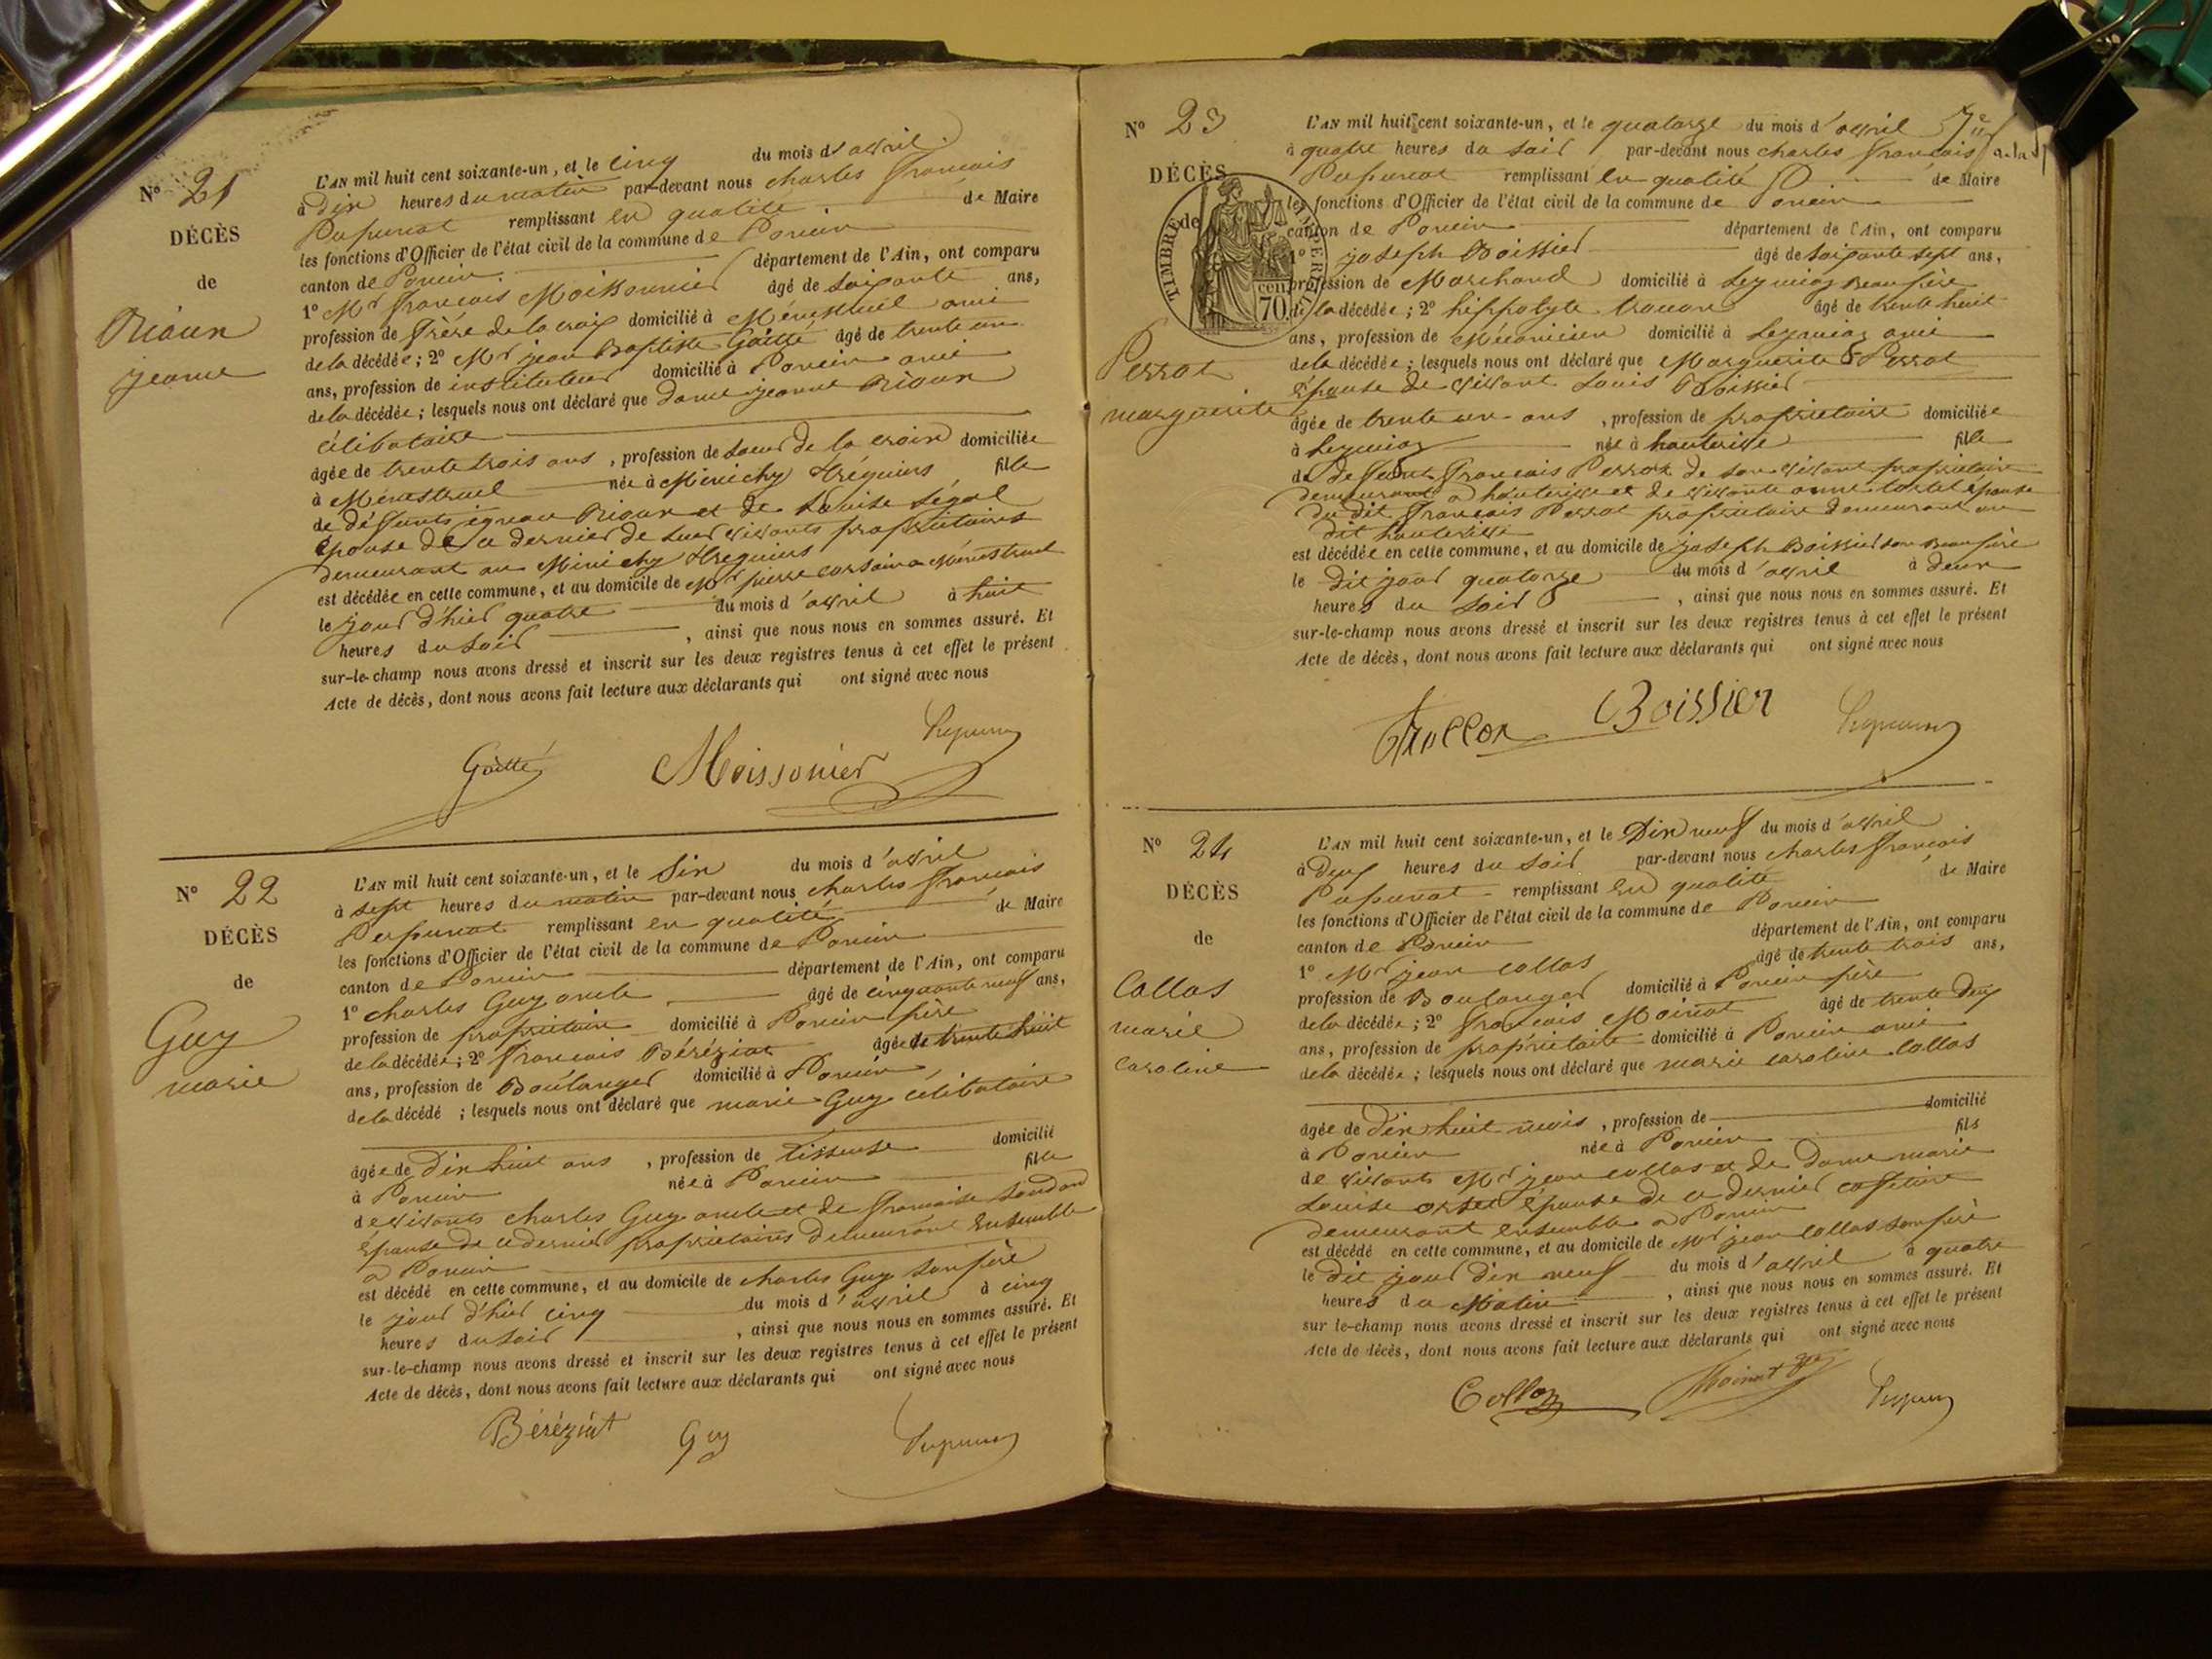 N° 21
DÉCÈS
de
Rioun
jeanne
L'AN mil huit cent soixante-un, et le cinq du mois d'avril
à dix heures du matin par-devant nous charles françois
Pupunat remplissant en qualité de Maire
les fonctions d'Officier de l'état civil de la commune de Poncin
canton de Poncin département de l'Ain, ont comparu
1° Mr françois Moissonnier âgé de soixante ans,
profession de frère de la croix domicilié à Ménestruel ami
de la décédée; 2° Mr jean Baptiste Goitté âgé de trente un
ans, profession de instituteur domicilié à Poncin ami
de la décédée; lesquels nous ont déclaré que dame jeanne Rioun
célibataire
âgée de trente trois ans, profession de soeur de la croix domiciliée
à Ménestruel née à Minichy Tréguiers fille
de défunts Rioun et de Louise Ségal
épouse de ce dernier de leur vivants propriétaires
demeurant au Minichy Treguiers
est décédée en cette commune, et au domicile de Mr pierre a Ménestruel
le jour d'hier quatre du mois d'avril à huit
heures du soir, ainsi que nous nous en sommes assuré. Et
sur-le-champ nous avons dressé et inscrit sur les deux registres tenus à cet effet le présent
Acte de décès, dont nous avons fait lecture aux déclarants qui ont signé avec nous
Goitté Moissonier Pupunat
N° 22
DÉCÈS
de
Guy
marie
L'AN mil huit cent soixante-un, et le Six du mois d'avril
à sept heures du matin par-devant nous charles françois
Pupunat remplissant en qualité de Maire
les fonctions d'Officier de l'état civil de la commune de Poncin
canton de Poncin département de l'Ain, ont comparu
1° charles Guy oncle âgé de cinquante neuf ans,
profession de propriétaire domicilié à Poncin père
de la décédée; 2° françois Béréziat âgé de trente huit
ans, profession de Boulanger domicilié à Poncin
de la décédé; lesquels nous ont déclaré que marie Guy célibataire
âgée de dix huit ans, profession de tisseuse domicilié
à Poncin née à Poncin fille
de vivants charles Guy oncle et de françoise
épouse de ce dernier propriétaires demeurant ensemble
a Poncin
est décédé en cette commune, et au domicile de charles Guy son père
le jour d'hier cinq du mois d'avril à cinq
heures du soir, ainsi que nous nous en sommes assuré. Et
sur-le-champ nous avons dressé et inscrit sur les deux registres tenus à cet effet le présent
Acte de décès, dont nous avons fait lecture aux déclarants qui ont signé avec nous
Béréziat Guy Pupunat
N° 23
DÉCÈS
de
TIMBRE IMPERIAL
70 cen
Perrot
marguerite
L'AN mil huit cent soixante-un, et le quatorze du mois d'avril
à quatre heures du soir par-devant nous charles françois
Pupunat remplissant en qualité de Maire
les fonctions d'Officier de l'état civil de la commune de Poncin
canton de Poncin département de l'Ain, ont comparu
1° joseph Boissier âgé de soixante sept ans,
profession de Marchand domicilié à Leymiaz Beau père
de la décédée; 2° hippolyte âgé de trente huit
ans, profession de Mécanicien domicilié à Leymiaz ami
de la décédée; lesquels nous ont déclaré que Marguerite Perrot
épouse de vivant Louis Boissier
âgée de trente un ans, profession de propriétaire domiciliée
à Leymiaz née à hauterive fille
de défunt françois Perrot de son vivant propriétaire
demeurant a hauterive et de vivante anne épouse
du dit françois Perrot propriétaire demeurant au
dit hauterive
est décédée en cette commune, et au domicile de joseph Boissier son Beau père
le dit jour quatorze du mois d'avril à deux
heures du soir, ainsi que nous nous en sommes assuré. Et
sur-le-champ nous avons dressé et inscrit sur les deux registres tenus à cet effet le présent
Acte de décès, dont nous avons fait lecture aux déclarants qui ont signé avec nous
Boissier Pupunat
N° 24
DÉCÈS
de
Collas
marie
caroline
L'AN mil huit cent soixante-un, et le Dix neuf du mois d'avril
à deux heures du soir par-devant nous charles françois
Pupunat remplissant en qualité de Maire
les fonctions d'Officier de l'état civil de la commune de Poncin
canton de Poncin département de l'Ain, ont comparu
1° Mr jean collas âgé de trente trois ans,
profession de Boulanger domicilié à Poncin père
de la décédée; 2° françois Moinat âgé de trente deux
ans, profession de propriétaire domicilié à Poncin ami
de la décédée; lesquels nous ont déclaré que marie caroline collas
âgée de dix huit mois, profession de domicilié
à Poncin née à Poncin fils
de vivants Mr jean collas et de Dame marie
Louise orset épouse de ce dernier cafetiere
demeurant ensemble a Poncin
est décédé en cette commune, et au domicile de Mr jean collas son père
le dit jour dix neuf du mois d'avril à quatre
heures du Matin, ainsi que nous nous en sommes assuré. Et
sur le-champ nous avons dressé et inscrit sur les deux registres tenus à cet effet le présent
Acte de décès, dont nous avons fait lecture aux déclarants qui ont signé avec nous
Collas Moinat Pupunat